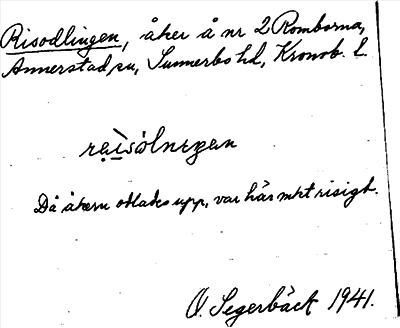 Risodlingen, åker å nr 2 Romborna,
Annerstad sn, Sunnerbo hd, Kronob. l.
Då åkern odlades upp, var här mkt risigt.
O. Segerbäck 1941.